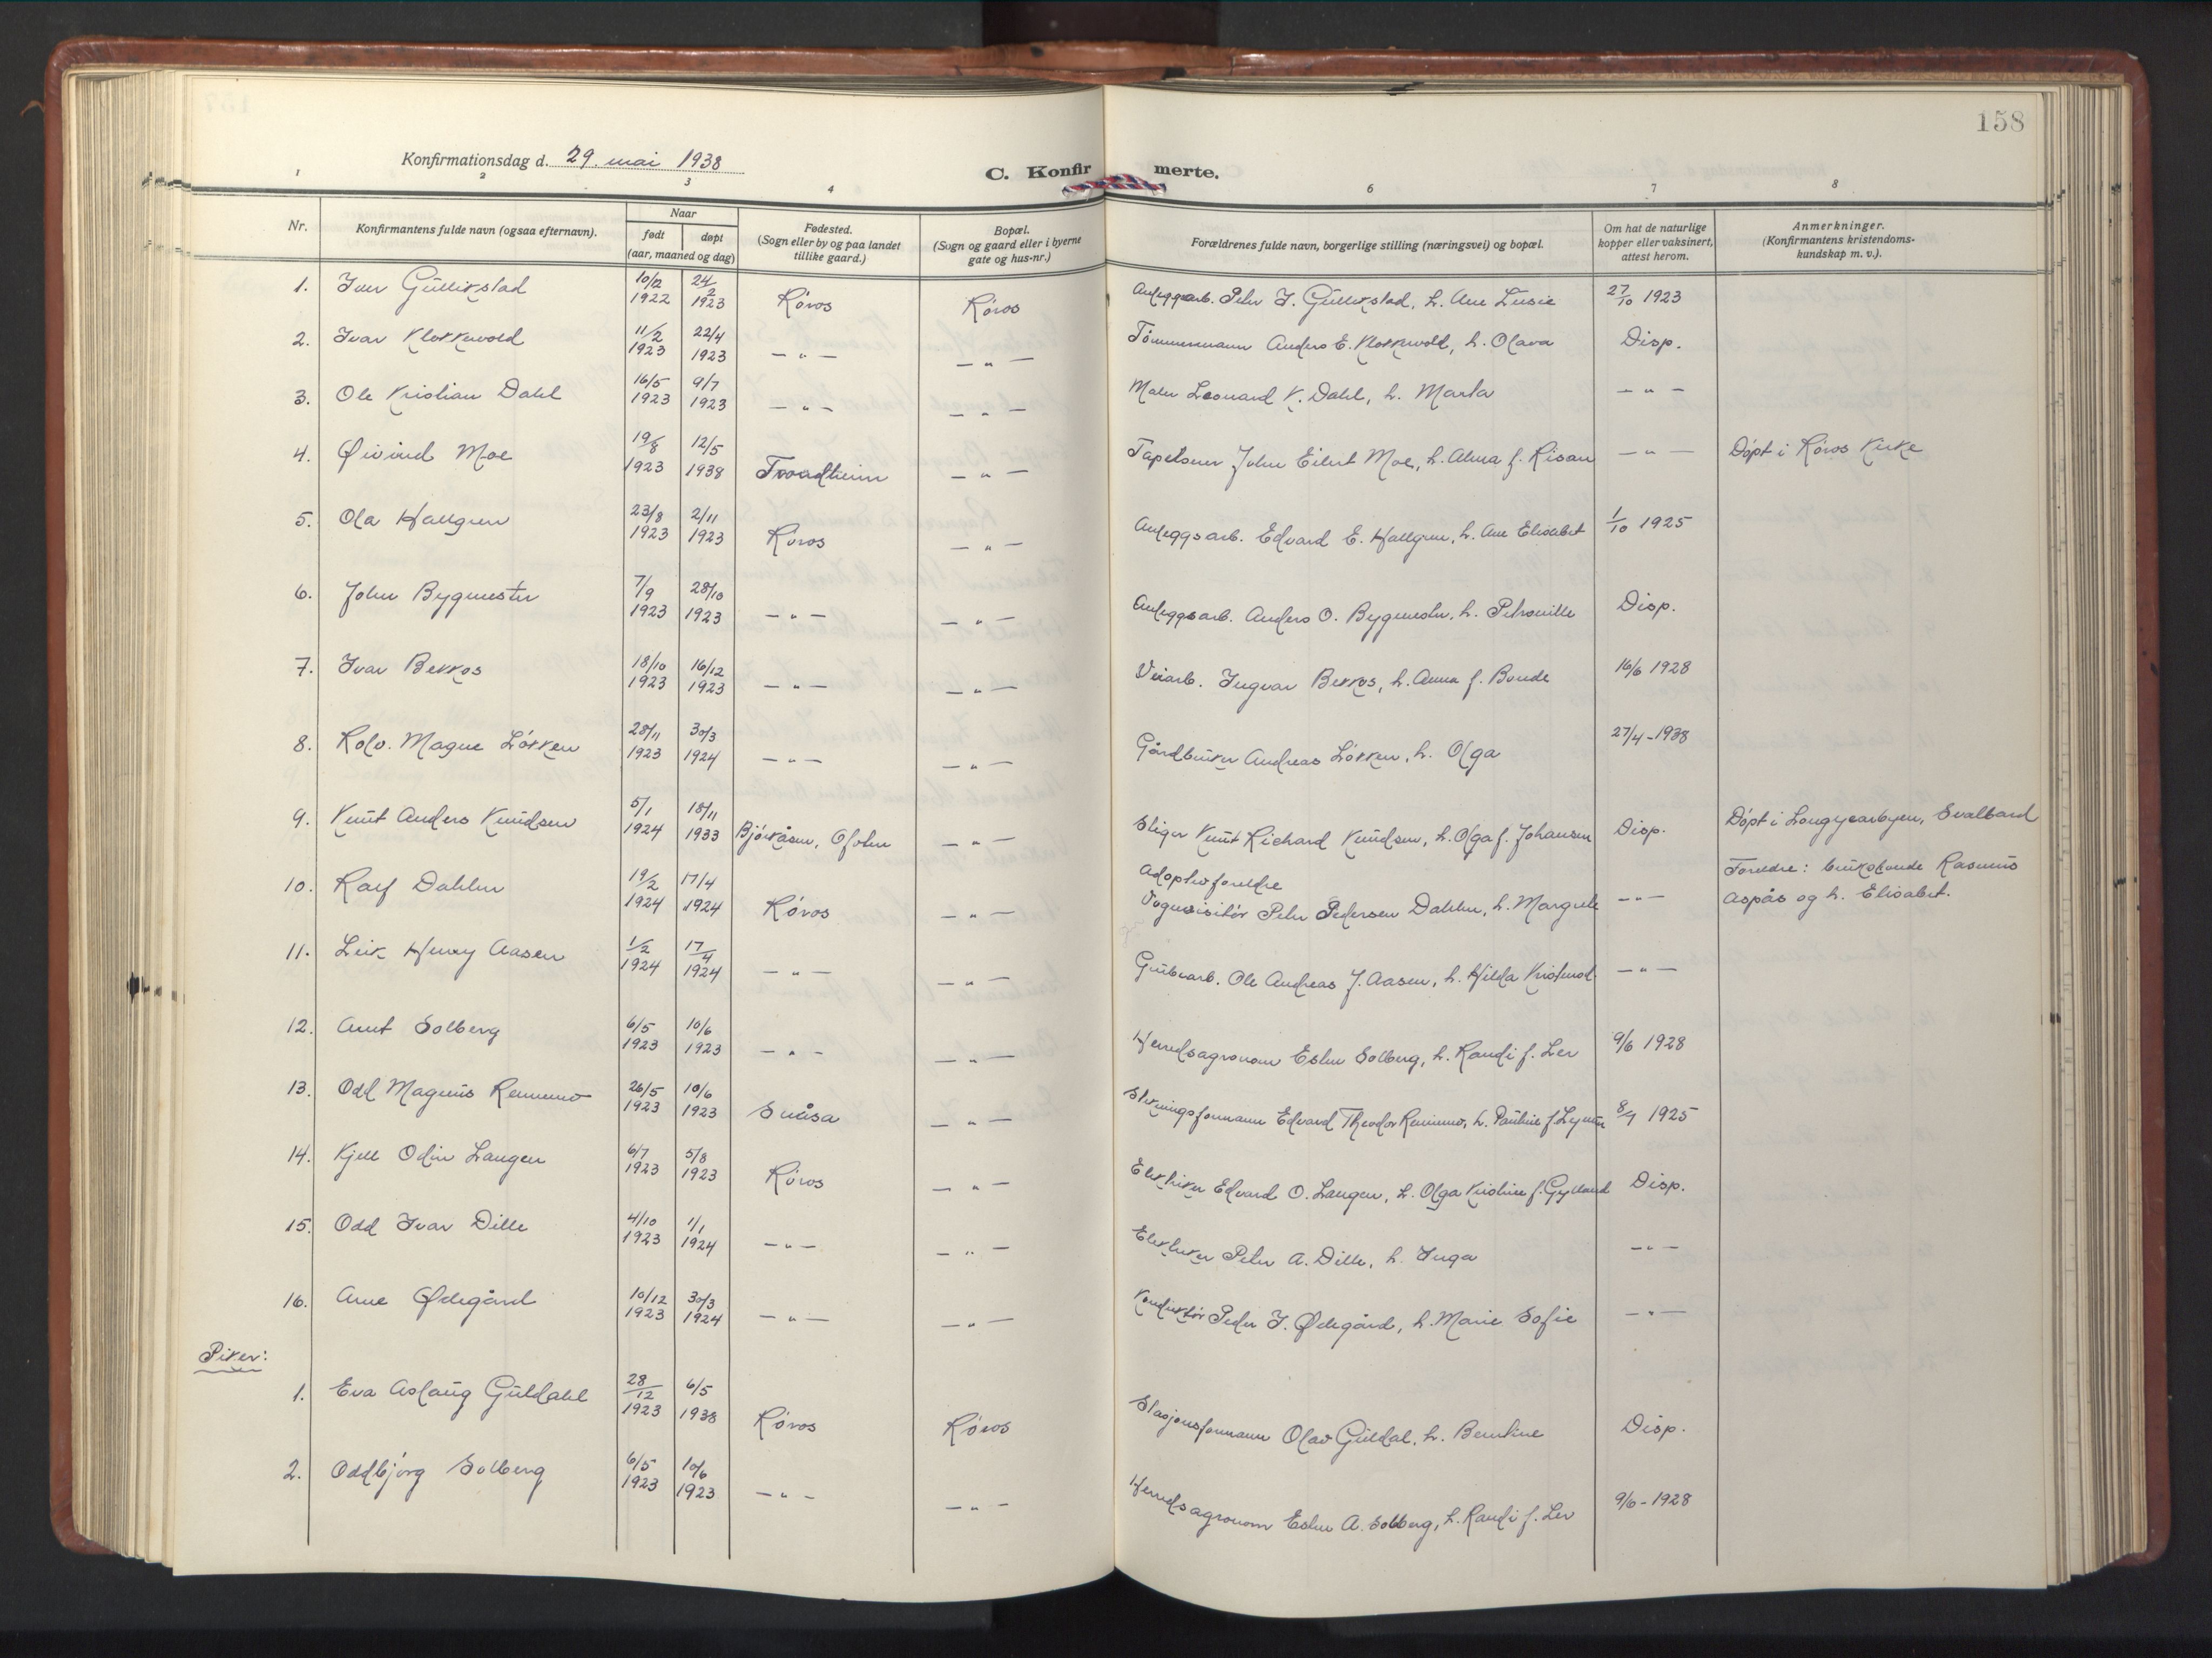 158
Konfirmationsdag d. 29. mai 1938
C. Konfirmerte.
1 2 3 4 6 7 8
Nr.
Konfirmantens fulde navn (ogsaa efternavn).
Naar
født
døpt
(aar, maaned og dag)
Fødested.
(Sogn eller by og paa landet
tillike gaard.)
Bopæl.
(Sogn og gaard eller i byerne
gate og hus-nr.)
Forældrenes fulde navn, borgerlige stilling (næringsvei) og bopæl.
Om hat de naturlige
kopper eller vaksinert,
attest herom.
Anmerkninger.
(Konfirmantens kristendoms-
kundskap m. v.).
1. Iver Gullikstad 10/12 1922 24/2 1923 Røros Røros Anleggsarb. Peter J. Gullikstad, h. Ane Lusie 27/10 1923
2. Ivar Klokkervold 11/2 1923 22/4 1923 — " — — " — Tømmermann Anders E. Klokkervold, h. Olava Disp.
3. Ole Kristian Dahl 16/5 1923 9/7 1923 — " — — " — Maler Leonard K. Dahl, h. Marta — " —
4. Øivind Moe 19/8 1923 12/5 1938 Trondheim — " — Tapetserer John Eilert Moe, h. Alma f. Risan — " — Døpt i Røros Kirke
5. Ola Hallgren 23/8 1923 2/11 1923 Røros — " — Anleggsarb. Edvard E. Hallgren, h. Ane Elisabet 1/10 1925
6. John Bygmester 7/9 1923 28/10 1923 — " — — " — Anleggsarb. Anders O. Bygmester, h. Petronille Disp.
7. Ivar Bekkos 18/10 1923 16/12 1923 — " — — " — Veiarb. Ingvar Bekkos, h. Anna f. Bonde 16/6 1928
8. Rolv. Magne Løkken 28/11 1923 30/3 1924 — " — — " — Gårdbruker Andreas Løkken, h. Olga 27/4 - 1938
9. Knut Anders Knudsen 5/1 1924 18/11 1933 Bjørkåsen, Ofoten — " — Stiger Knut Richard Knudsen, h. Olga f. Johansen Disp. Døpt i Longyearbyen, Svalbard
10. Ralf Dahlen 19/2 1924 17/4 1924 Røros — " — Adoptivforeldre
Vognvisitør Peter Pedersen Dahlen, h. Margrete — " — Foreldre: bruksbonde Rasmus
Aspås og h. Elisabet.
11. Leik Henry Aasen 1/2 1924 17/4 1924 — " — — " — Grubearb. Ole Andreas J. Aasen, h. Hilda — " —
12. Arnt Solberg 6/5 1923 10/6 1923 — " — — " — Herredsagronom Esten Solberg, h. Randi f. Ler 9/6 1928
13. Odd Magnus Remmo 26/5 1923 10/6 1923 Snåsa — " — Edvard Theodor Remmo, h. Pauline 8/7 1925
14. Kjell Odin Langen 6/7 1923 5/8 1923 Røros — " — Elektriker Edvard O. Langen, h. Olga Kristine f. Gylland Disp.
15. Odd Ivar Dille 4/10 1923 1/1 1924 — " — — " — Elektriker Peter A. Dille, h. Inga — " —
16. Arne Ødegård 10/12 1923 30/3 1924 — " — — " — Konduktør Peder J. Ødegård, h. Marie Sofie — " —
Piker:
1. Eva Aslaug Guldahl 28/12 1923 6/5 1938 Røros Røros Stasjonsformann Olav Guldal, h. Berntine Disp.
2. Oddbjørg Solberg 6/5 1923 10/6 1923 — " — — " — Herredsagronom Esten A. Solberg, h. Randi f. Ler 9/6 - 1928